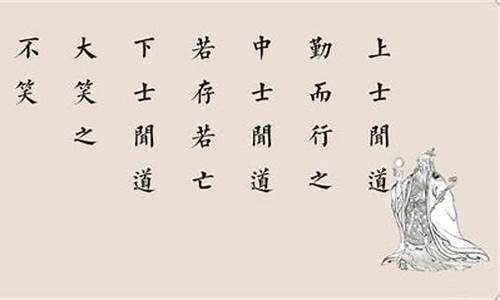 上士聞道
勤而行之
中士聞道
若存若亡
下士聞道
大笑之
不笑